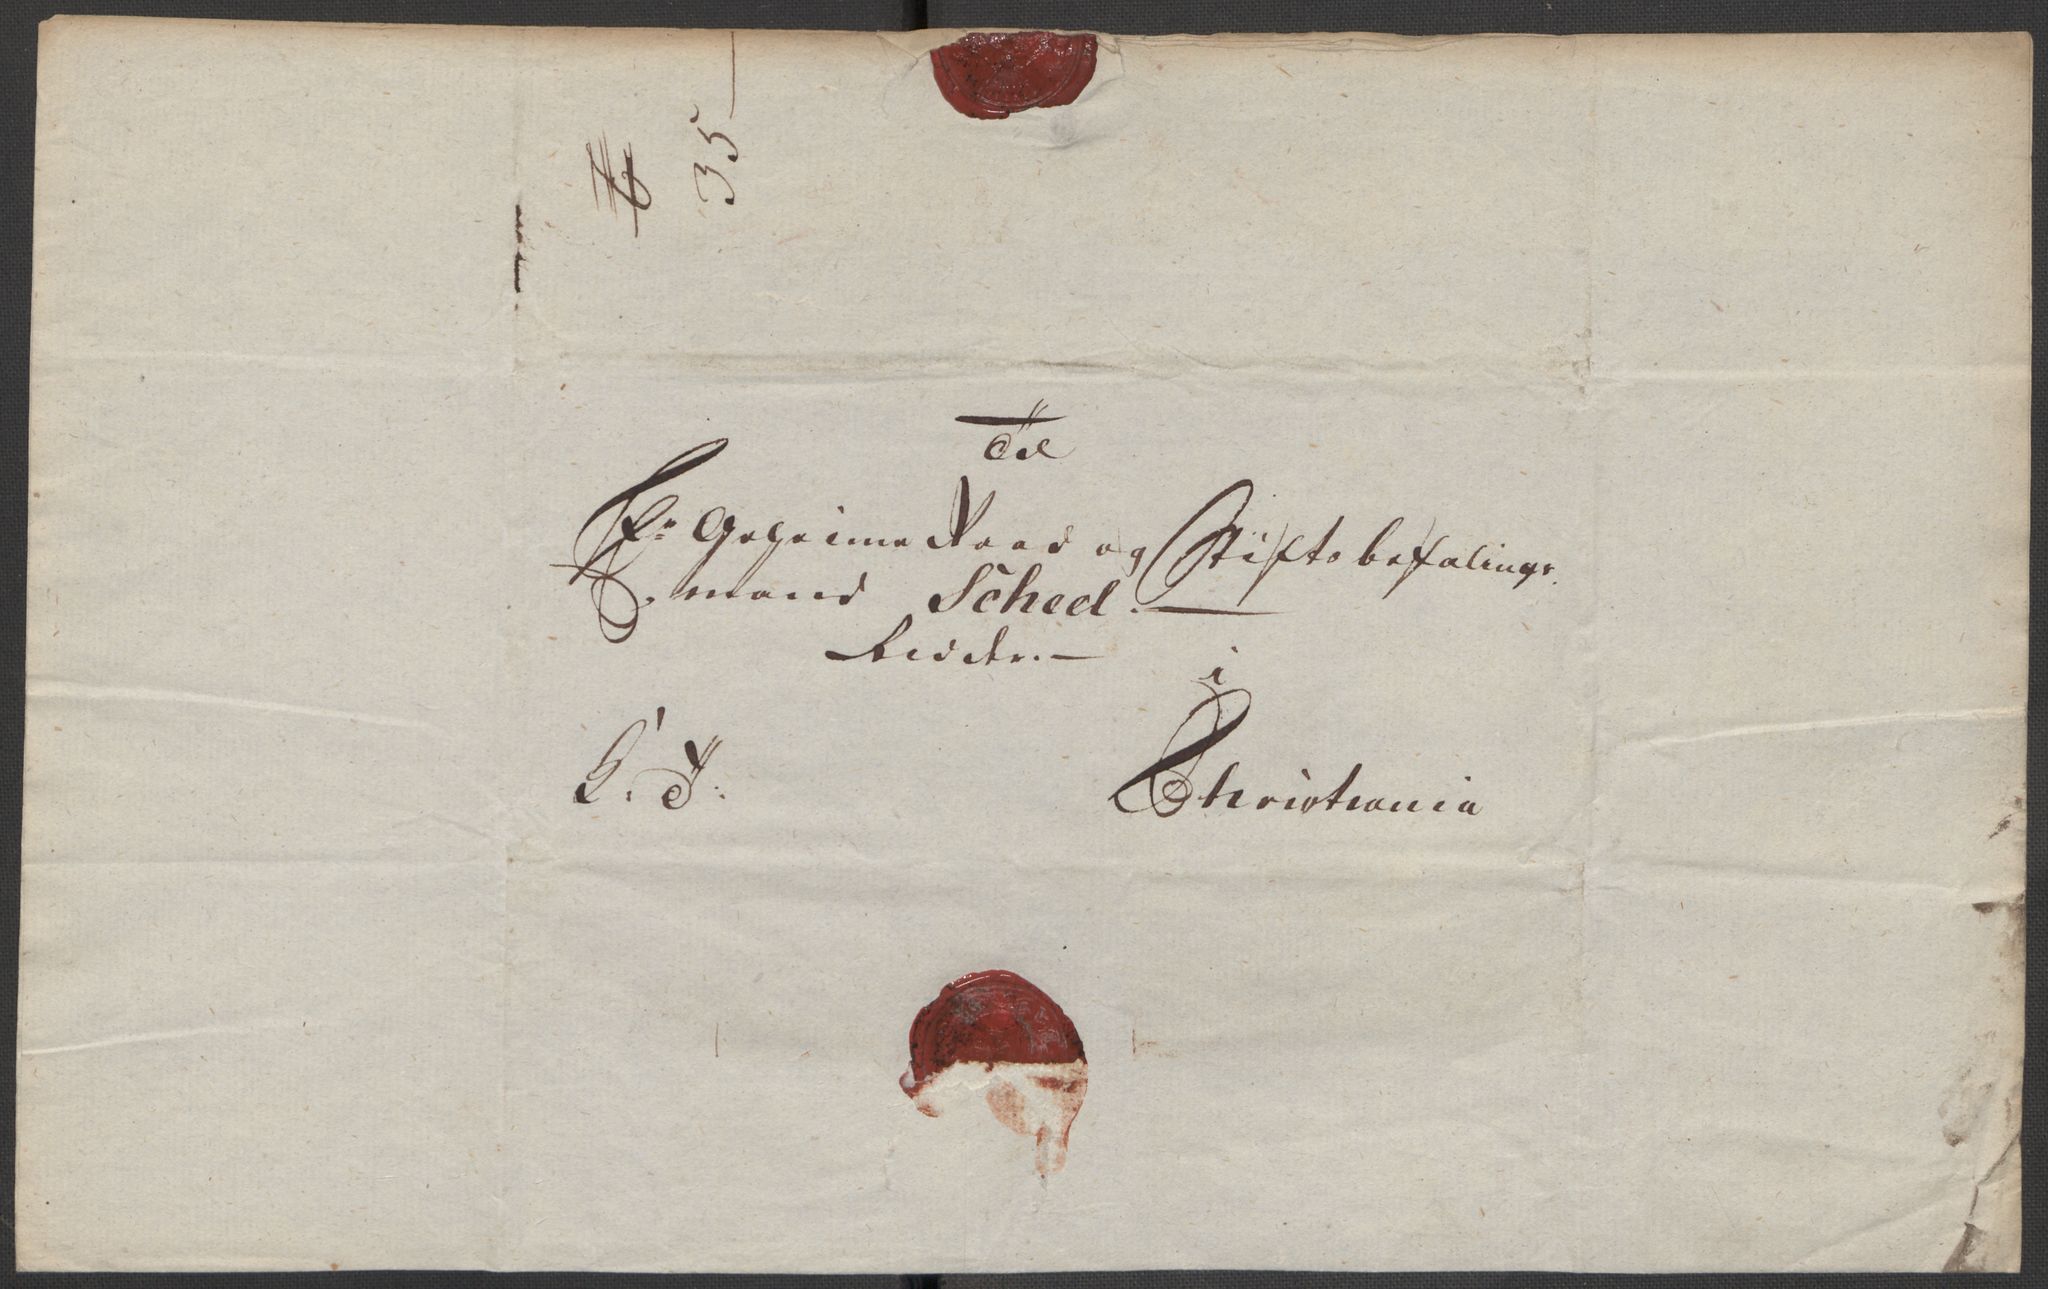 35
Til
Hr Geheime Raad og Stiftsbefalings-
mand Scheel.
Ridder.
i
K. T. Christiania